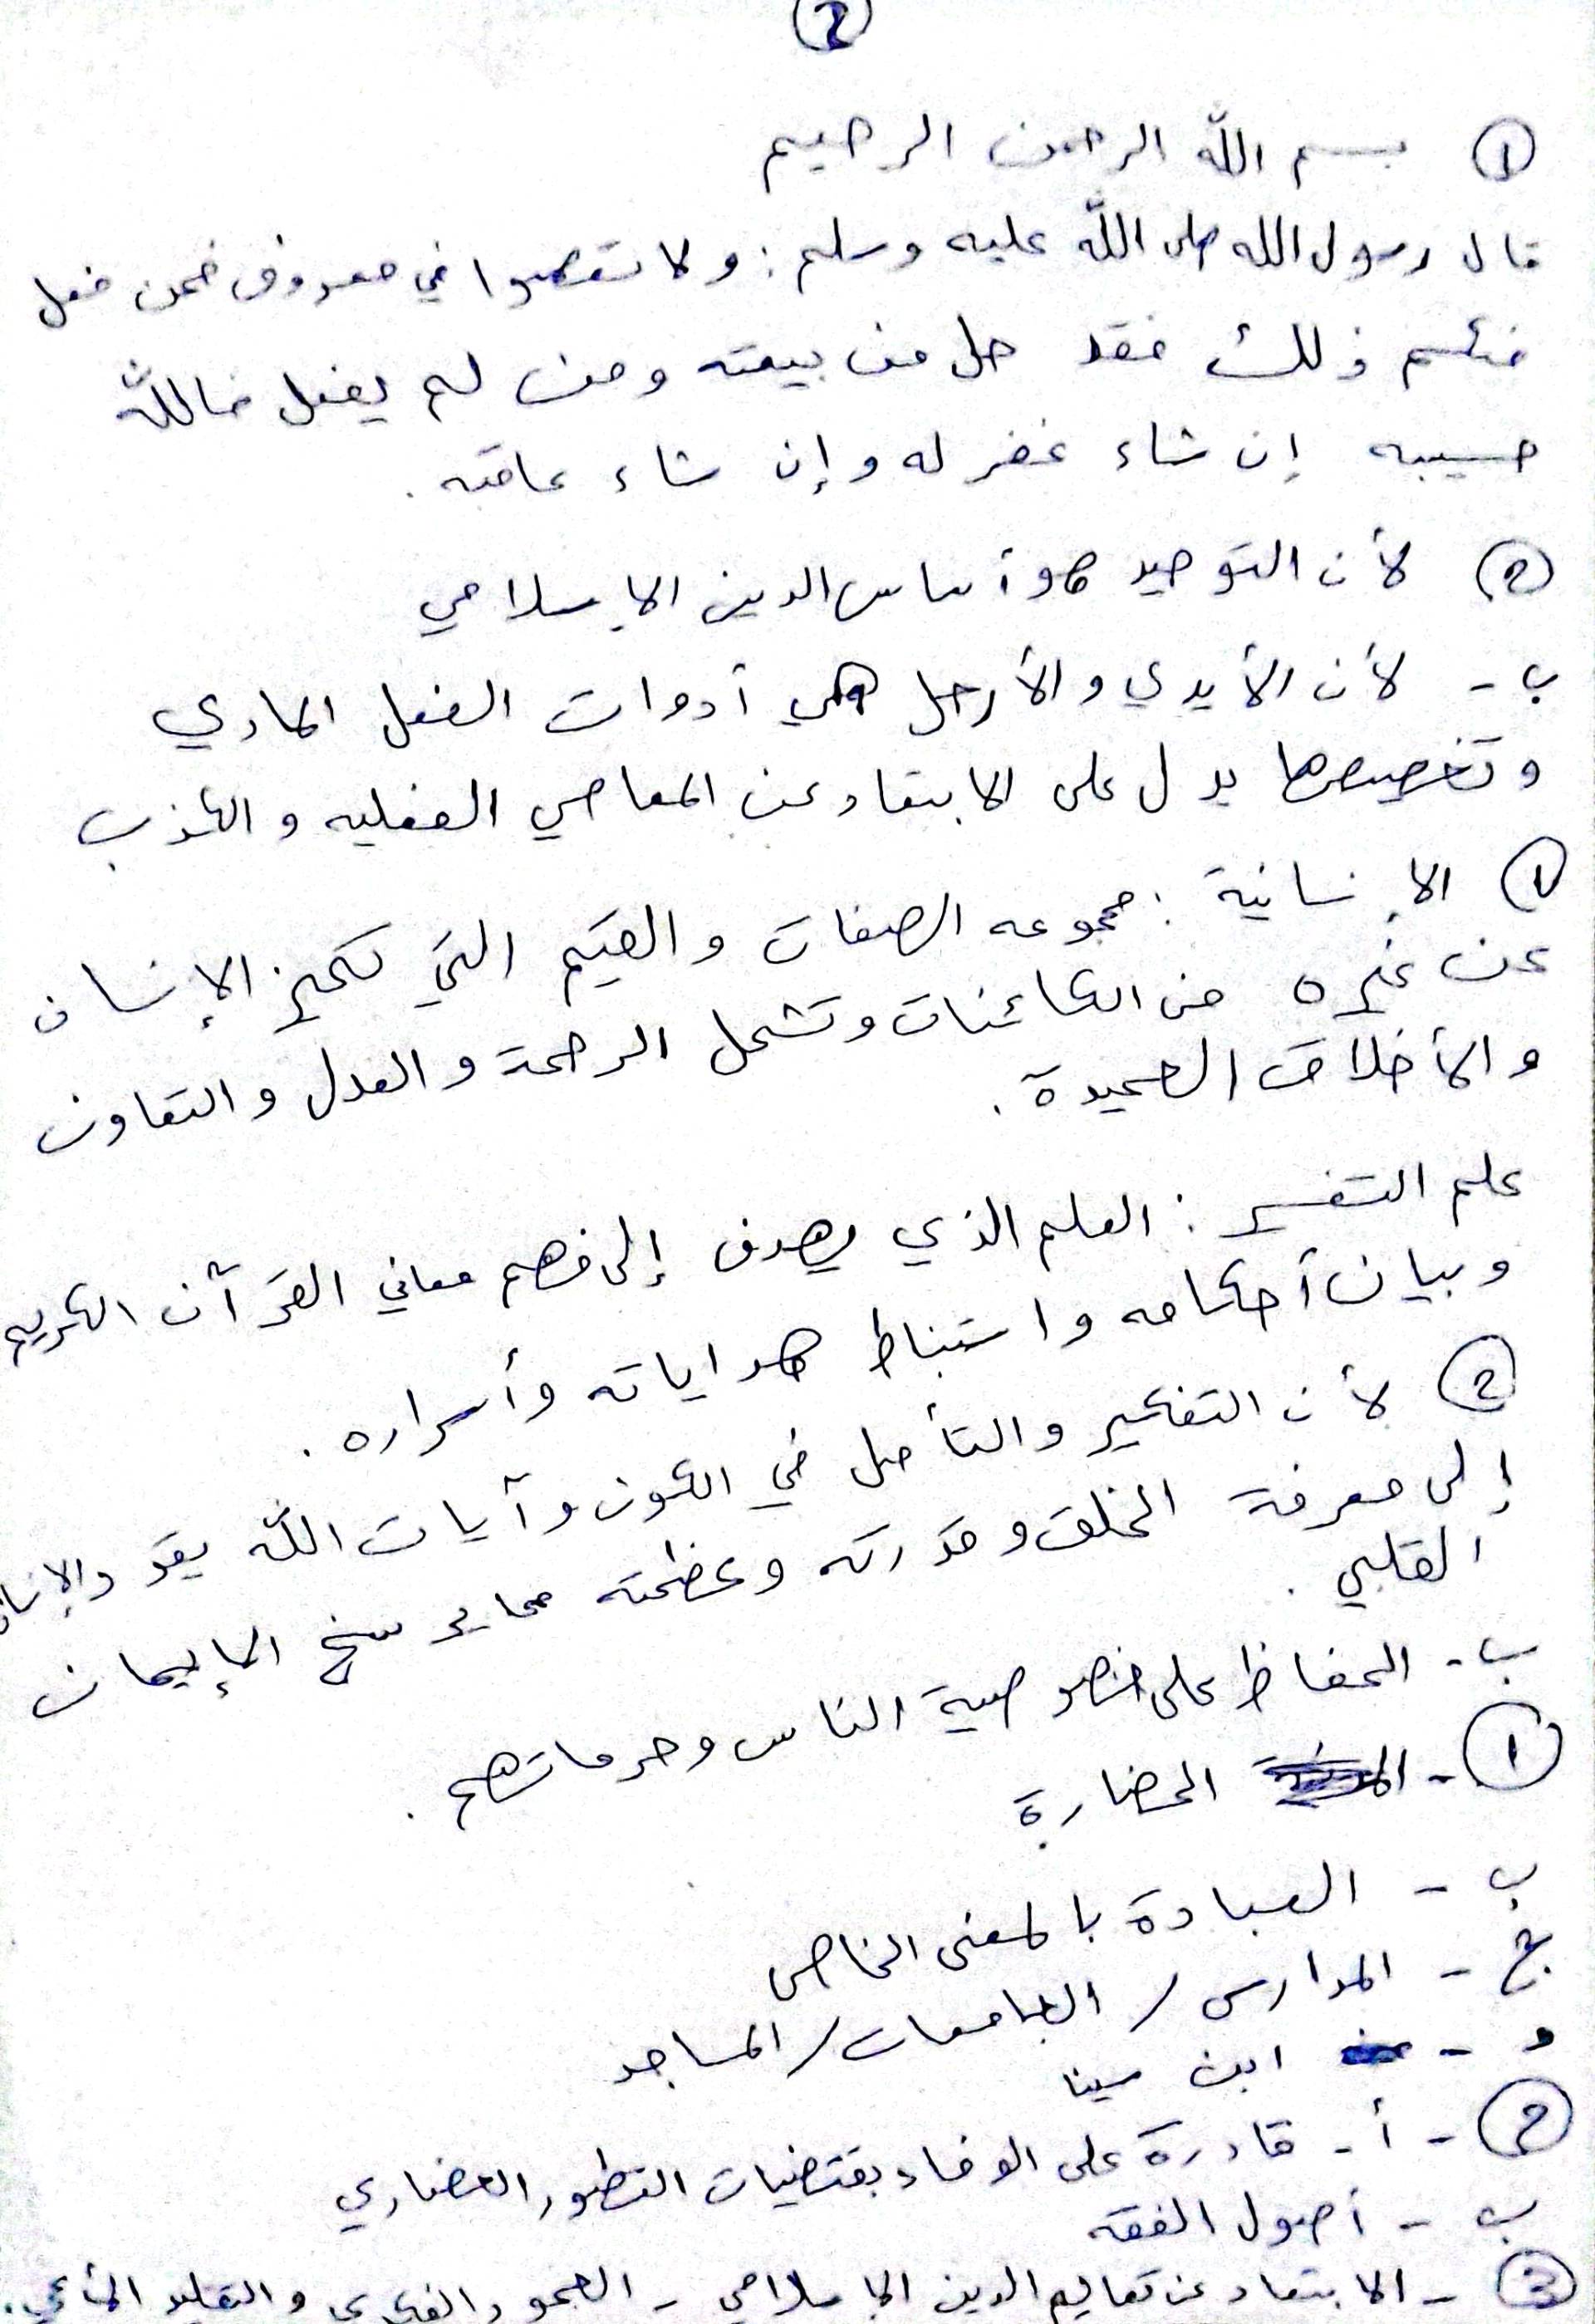 2
① بسم الله الرحمن الرحيم
قال رسول الله صلى الله عليه وسلم: ولا تعصوا في معروف فمن فعل
منكم ذلك فقد حل من بيعته ومن لم يفعل فالله
حسيبه إن شاء غفر له وإن شاء عاقبه.
② لأن التوحيد هو أساس الدين الإسلامي
ب - لأن الأيدي والأرجل هي أدوات الفعل المادي
وتخصيصها يدل على الابتعاد عن المعاصي الفعليه والكذب
① الإنسانية: مجموعه الصفات والقيم التي تميز الإنسان
عن غيره من الكائنات وتشمل الرحمة والعدل والتعاون
والأخلاق الحميدة.
علم التفسير: العلم الذي يهدف إلى فهم معاني القرآن الكريم
وبيان أحكامه واستنباط هداياته وأسراره.
② لأن التفكير والتأمل في الكون وآيات الله يقود الإنسان
إلى معرفة الخلق وقدرته وعظمته مما يرسخ الإيمان
القلبي.
ب - الحفاظ على خصوصية الناس وحرماتهم.
① - الحضارة
ب - العبادة بالمعنى الخاص
ج - المدارس / الجامعات / المساجد
د - ابن سينا
② - أ - قادرة على الوفاء بمقتضيات التطور الحضاري
ب - أصول الفقه
③ - الابتعاد عن تعاليم الدين الإسلامي - الجمود الفكري والتقليد